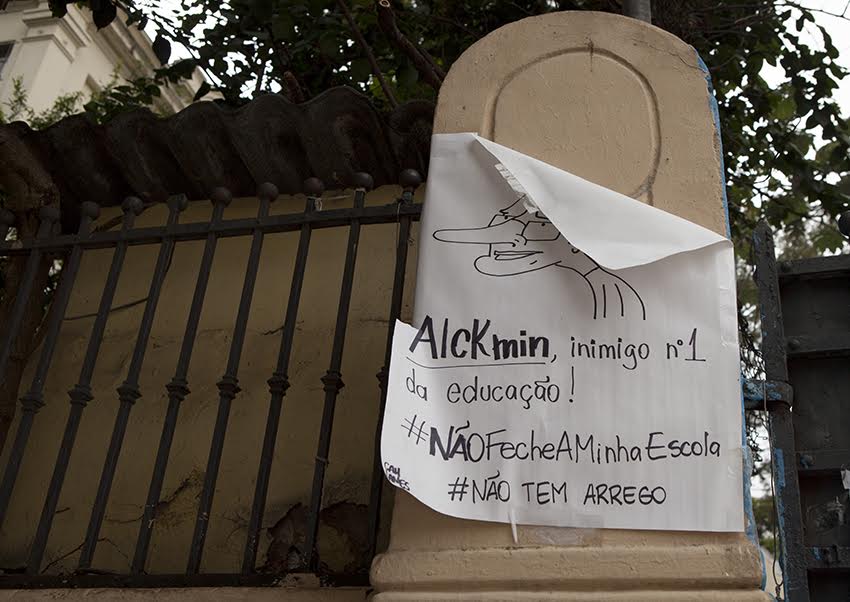 Alckmin, inimigo nº1
da educação!
#NÃOFecheAMinhaEscola
#NÃO TEM ARREGO